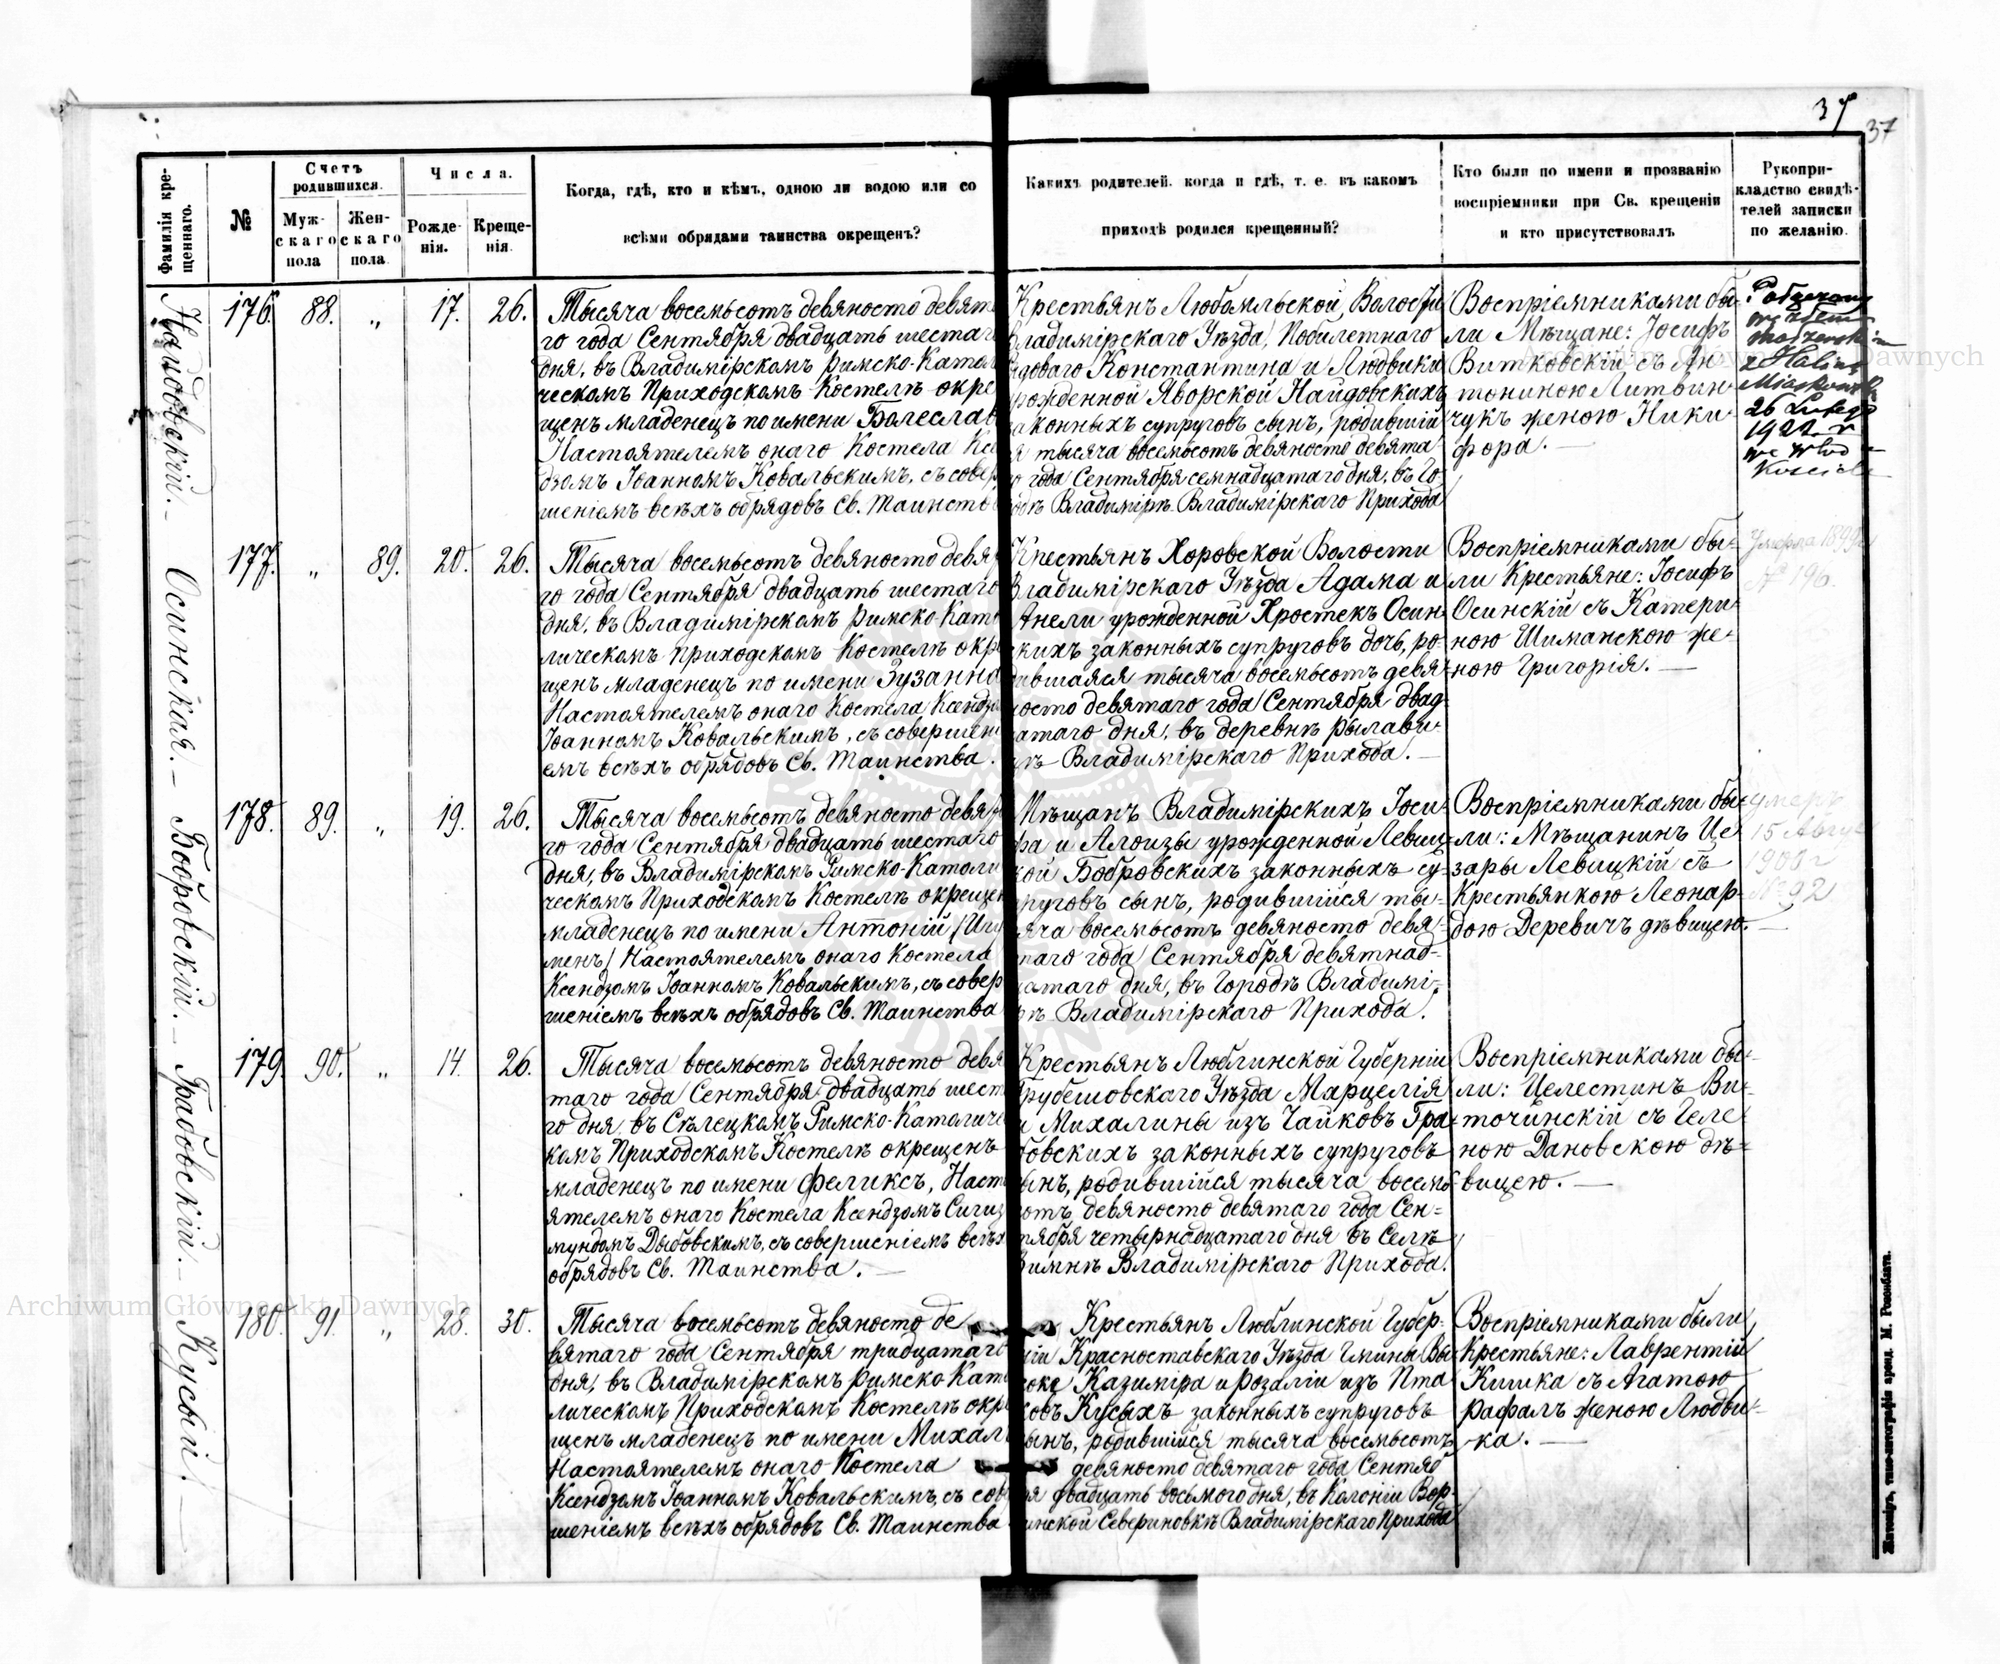 37
37
Фамилія кре-
щеннаго.
№
Счетъ
родившихся.
Муж-
скаго
пола
Жен-
скаго
пола.
Числа.
Рожде-
нія.
Креще-
нія.
Когда, гдѣ, кто и кѣмъ, одною ли водою или со
всѣми обрядами таинства окрещенъ?
Какихъ родителей, когда и гдѣ, т. е. въ какомъ
приходѣ родился крещенный?
Кто были по имени и прозванію
воспріемники при Св. крещеніи
и кто присутствовалъ
Рукопри-
кладство свидѣ-
телей записки
по желанію.
Найдовскій.
176. 88. „ 17. 26.
Тысяча восемьсотъ девяносто девят
го года Сентября двадцать шестаго
дня, въ Владимірскомъ Римско-Катол
ческомъ Приходскомъ Костелѣ окре
щенъ младенецъ по имени Болеслав
Настоятелемъ онаго Костела Ксе
дзомъ Іоанномъ Ковальскимъ, съ совер
шеніемъ всѣхъ обрядовъ Св. Таинств
Крестьянъ Любомльской Волости
Владимірскаго Уѣзда, Побилетнаго
рядоваго Константина и Людвики
рожденной Яворской Найдовскихъ
законныхъ супруговъ сынъ, родившій
я тысяча восемьсотъ девяносто девята
го года Сентября семнадцатаго дня, въ Го
родѣ Владимірѣ Владимірскаго Прихода
Воспріемниками бы-
ли Мѣщане: Іосифъ
Витковскій съ Ан-
тониною Литвин-
чукъ женою Ники-
фора. —
26 Lutego
Осинская.
177. „ 89. 20. 26.
Тысяча восемьсотъ девяносто девя
го года Сентября двадцать шестаго
дня, въ Владимірскомъ Римско-Като
лическомъ Приходскомъ Костелѣ окре
щенъ младенецъ по имени Зузанна
Настоятелемъ онаго Костела Ксендзо
Іоанномъ Ковальскимъ, съ совершені
емъ всѣхъ обрядовъ Св. Таинства.
Крестьянъ Хоровской Волости
Владимірскаго Уѣзда Адама и
Анели урожденной Хростекъ Осин-
скихъ законныхъ супруговъ дочь, ро-
дившаяся тысяча восемьсотъ девя-
носто девятаго года Сентября двад-
цатаго дня, въ деревнѣ Рылови-
цѣ Владимірскаго Прихода. —
Воспріемниками бы-
ли Крестьяне: Іосифъ
Осинскій съ Катери-
ною Шиманскою же-
ною Григорія. —
Умерла 1899 г
№ 196.
Бобровскій.
178. 89. „ 19. 26.
Тысяча восемьсотъ девяносто девя
го года Сентября двадцать шестаго
дня, въ Владимірскомъ Римско-Католи
ческомъ Приходскомъ Костелѣ окрещен
младенецъ по имени Антоній /Игу
менъ/ Настоятелемъ онаго Костела
Ксендзомъ Іоанномъ Ковальскимъ, съ совер
шеніемъ всѣхъ обрядовъ Св. Таинства
Мѣщанъ Владимірскихъ Іоси-
фа и Алоизы урожденной Левиц-
кой Бобровскихъ законныхъ су-
пруговъ сынъ, родившійся ты-
сяча восемьсотъ девяносто девя-
таго года Сентября девятнад-
цатаго дня, въ Городѣ Владимі-
рѣ Владимірскаго Прихода.
Воспріемниками бы-
ли: Мѣщанинъ Це-
зары Левицкій съ
Крестьянкою Леонар-
дою Деревичъ дѣвицею. —
умеръ
15 Август
1900 г
№ 92
Грабовскій.
179. 90. „ 14. 26.
Тысяча восемьсотъ девяносто девя
таго года Сентября двадцать шест
го дня, въ Сѣлецкомъ Римско-Католиче
комъ Приходскомъ Костелѣ окрещенъ
младенецъ по имени Феликсъ, Наст
ятелемъ онаго Костела Ксендзомъ Сигиз
мундомъ Дыбовскимъ, съ совершеніемъ всѣх
обрядовъ Св. Таинства. —
Крестьянъ Люблинской Губерніи
Грубешовскаго Уѣзда Марцелія
и Михалины изъ Чайковъ Гра-
бовскихъ законныхъ супруговъ
сынъ, родившійся тысяча восемь
сотъ девяносто девятаго года Сен-
тября четырнадцатаго дня въ Селѣ
Зимнѣ Владимірскаго Прихода.
Воспріемниками бы-
ли: Целестинъ Ви-
точинскій съ Геле-
ною Дановскою дѣ-
вицею. —
Кусый.
180. 91. „ 28. 30.
Тысяча восемьсотъ девяносто де
вятаго года Сентября тридцатаго
дня, въ Владимірскомъ Римско-Като
лическомъ Приходскомъ Костелѣ окре
щенъ младенецъ по имени Михал
Настоятелемъ онаго Костела
Ксендзомъ Іоанномъ Ковальскимъ, съ сов
шеніемъ всѣхъ обрядовъ Св. Таинства
Крестьянъ Люблинской Губер-
ніи Красноставскаго Уѣзда Гмины Вы
соке Казиміра и Розаліи изъ Пта
ковъ Кусыхъ законныхъ супруговъ
сынъ, родившійся тысяча восемьсотъ
девяносто девятаго года Сентяб
ря двадцать восьмого дня, въ Колоніи Вор-
чинской Севериновкѣ Владимірскаго Прихода
Воспріемниками были
Крестьяне: Лаврентій
Кишка съ Агатою
Рафалъ женою Людви-
ка. —
Житоміръ, типо-литографія аренд. М. Розенблата.
Archiwum Główne Akt Dawnych
Archiwum Główne Akt Dawnych